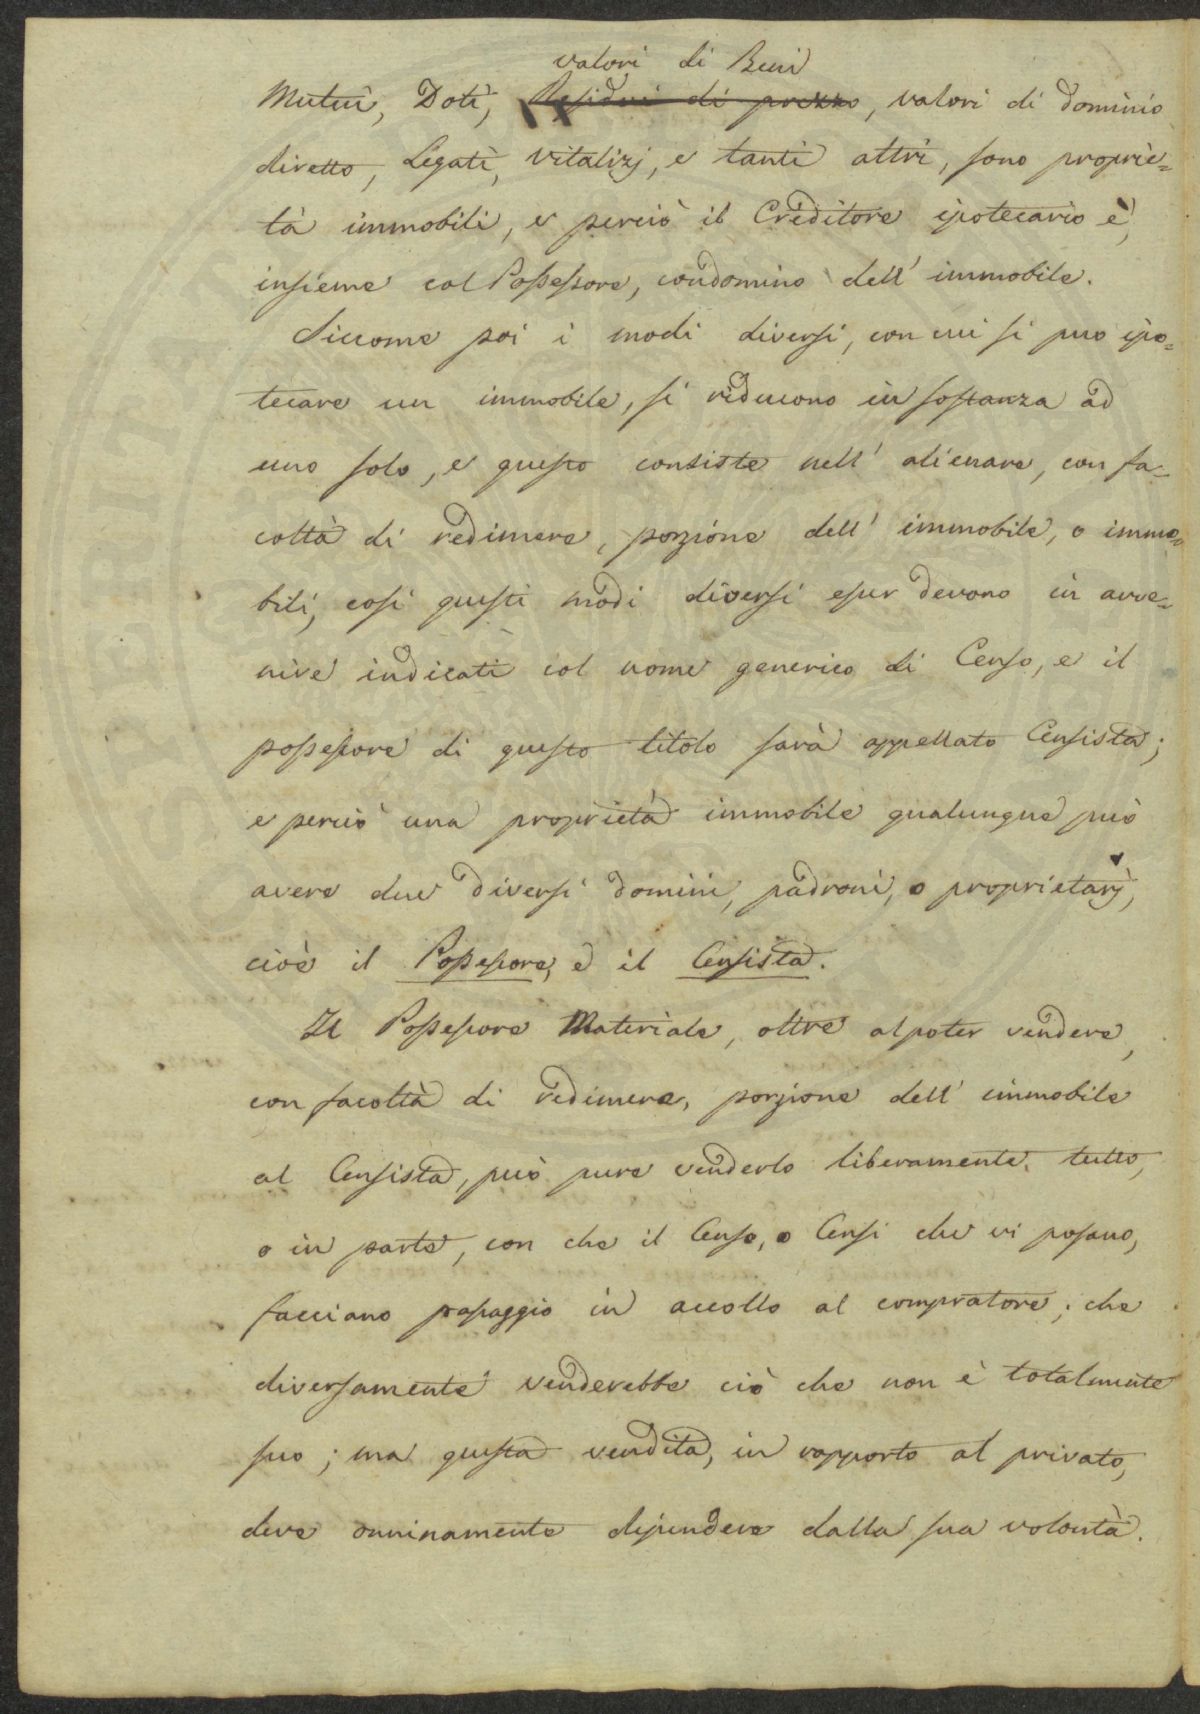 valori di Beni
Mutui, Doti, Residui di prezzo, valori di dominio
diretto, Legati, vitalizj, e tanti altri, sono proprie-
tà immobili, e perciò il Creditore ipotecario è,
insieme col Possessore, condomino dell' immobile.
Siccome poi i modi diversi, con cui si puo ipo-
tecare un immobile, si riducono in sostanza ad
uno solo, e questo consiste nell' alienare, con fa-
coltà di redimere, porzione dell' immobile, o immo-
bili, così questi modi diversi esser devono in avve-
nire indicati col nome generico di Censo, e il
possessore di questo titolo sarà appellato Censista;
e perciò una proprietà immobile qualunque può
avere due diversi domini, padroni, o proprietarj,
cioè il Possessore, e il Censista.
Il Possessore Materiale, oltre al poter vendere,
con facoltà di redimere, porzione dell' immobile
al Censista, può pure venderlo liberamente, tutto,
o in parte, con che il Censo, o Censi che vi posano,
facciano passaggio in accollo al compratore; che
diversamente venderebbe ciò che non è totalmente
suo; ma questa vendita, in rapporto al privato,
deve onninamente dipendere dalla sua volontà.